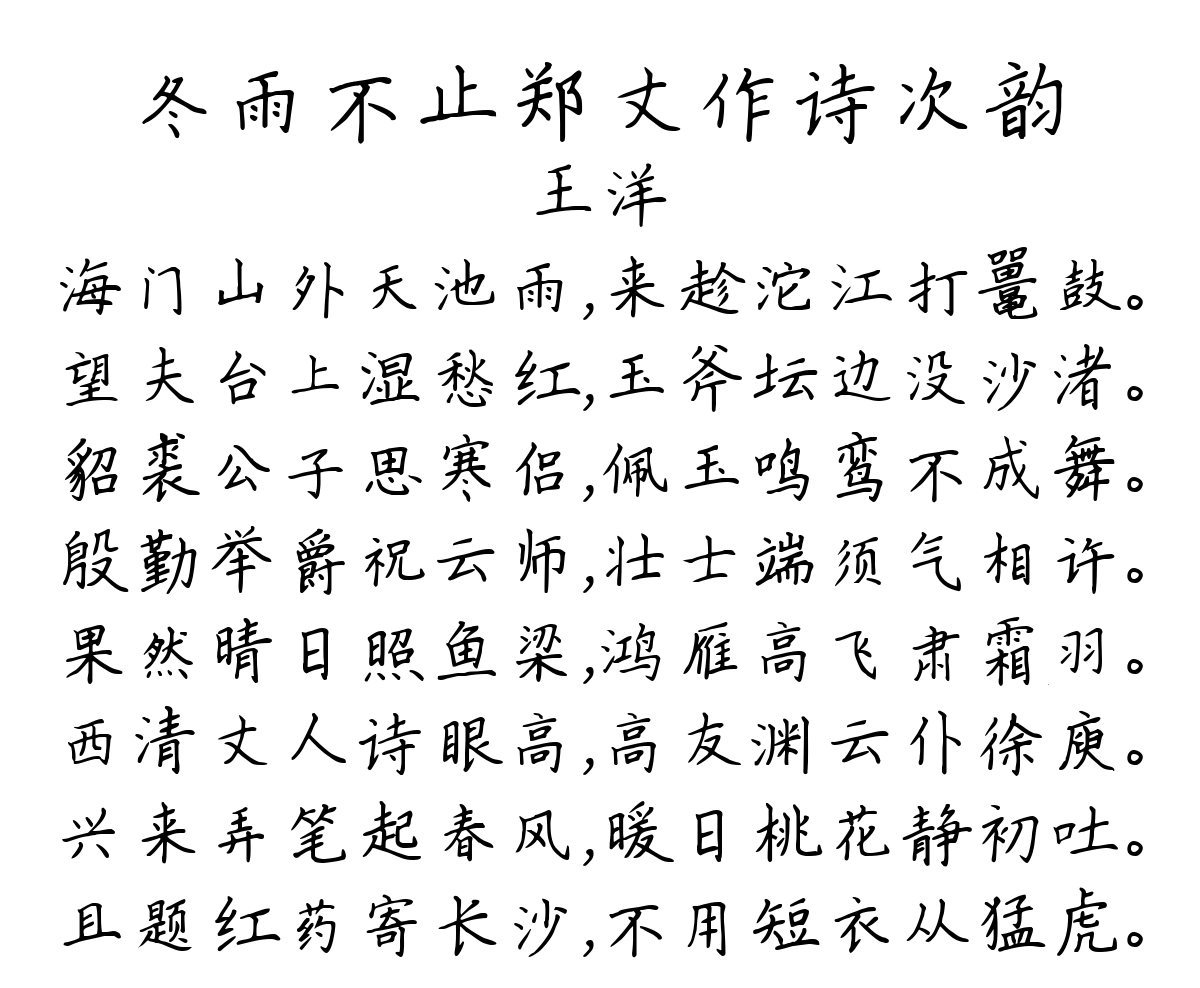 冬雨不止郑丈作诗次韵
王洋
海门山外天池雨,来趁沱江打鼍鼓。
望夫台上湿愁红,玉斧坛边没沙渚。
貂裘公子思寒侣,佩玉鸣鸾不成舞。
殷勤举爵祝云师,壮士端须气相许。
果然晴日照鱼梁,鸿雁高飞肃霜羽。
西清丈人诗眼高,高友渊云仆徐庾。
兴来弄笔起春风,暖日桃花静初吐。
且题红药寄长沙,不用短衣从猛虎。